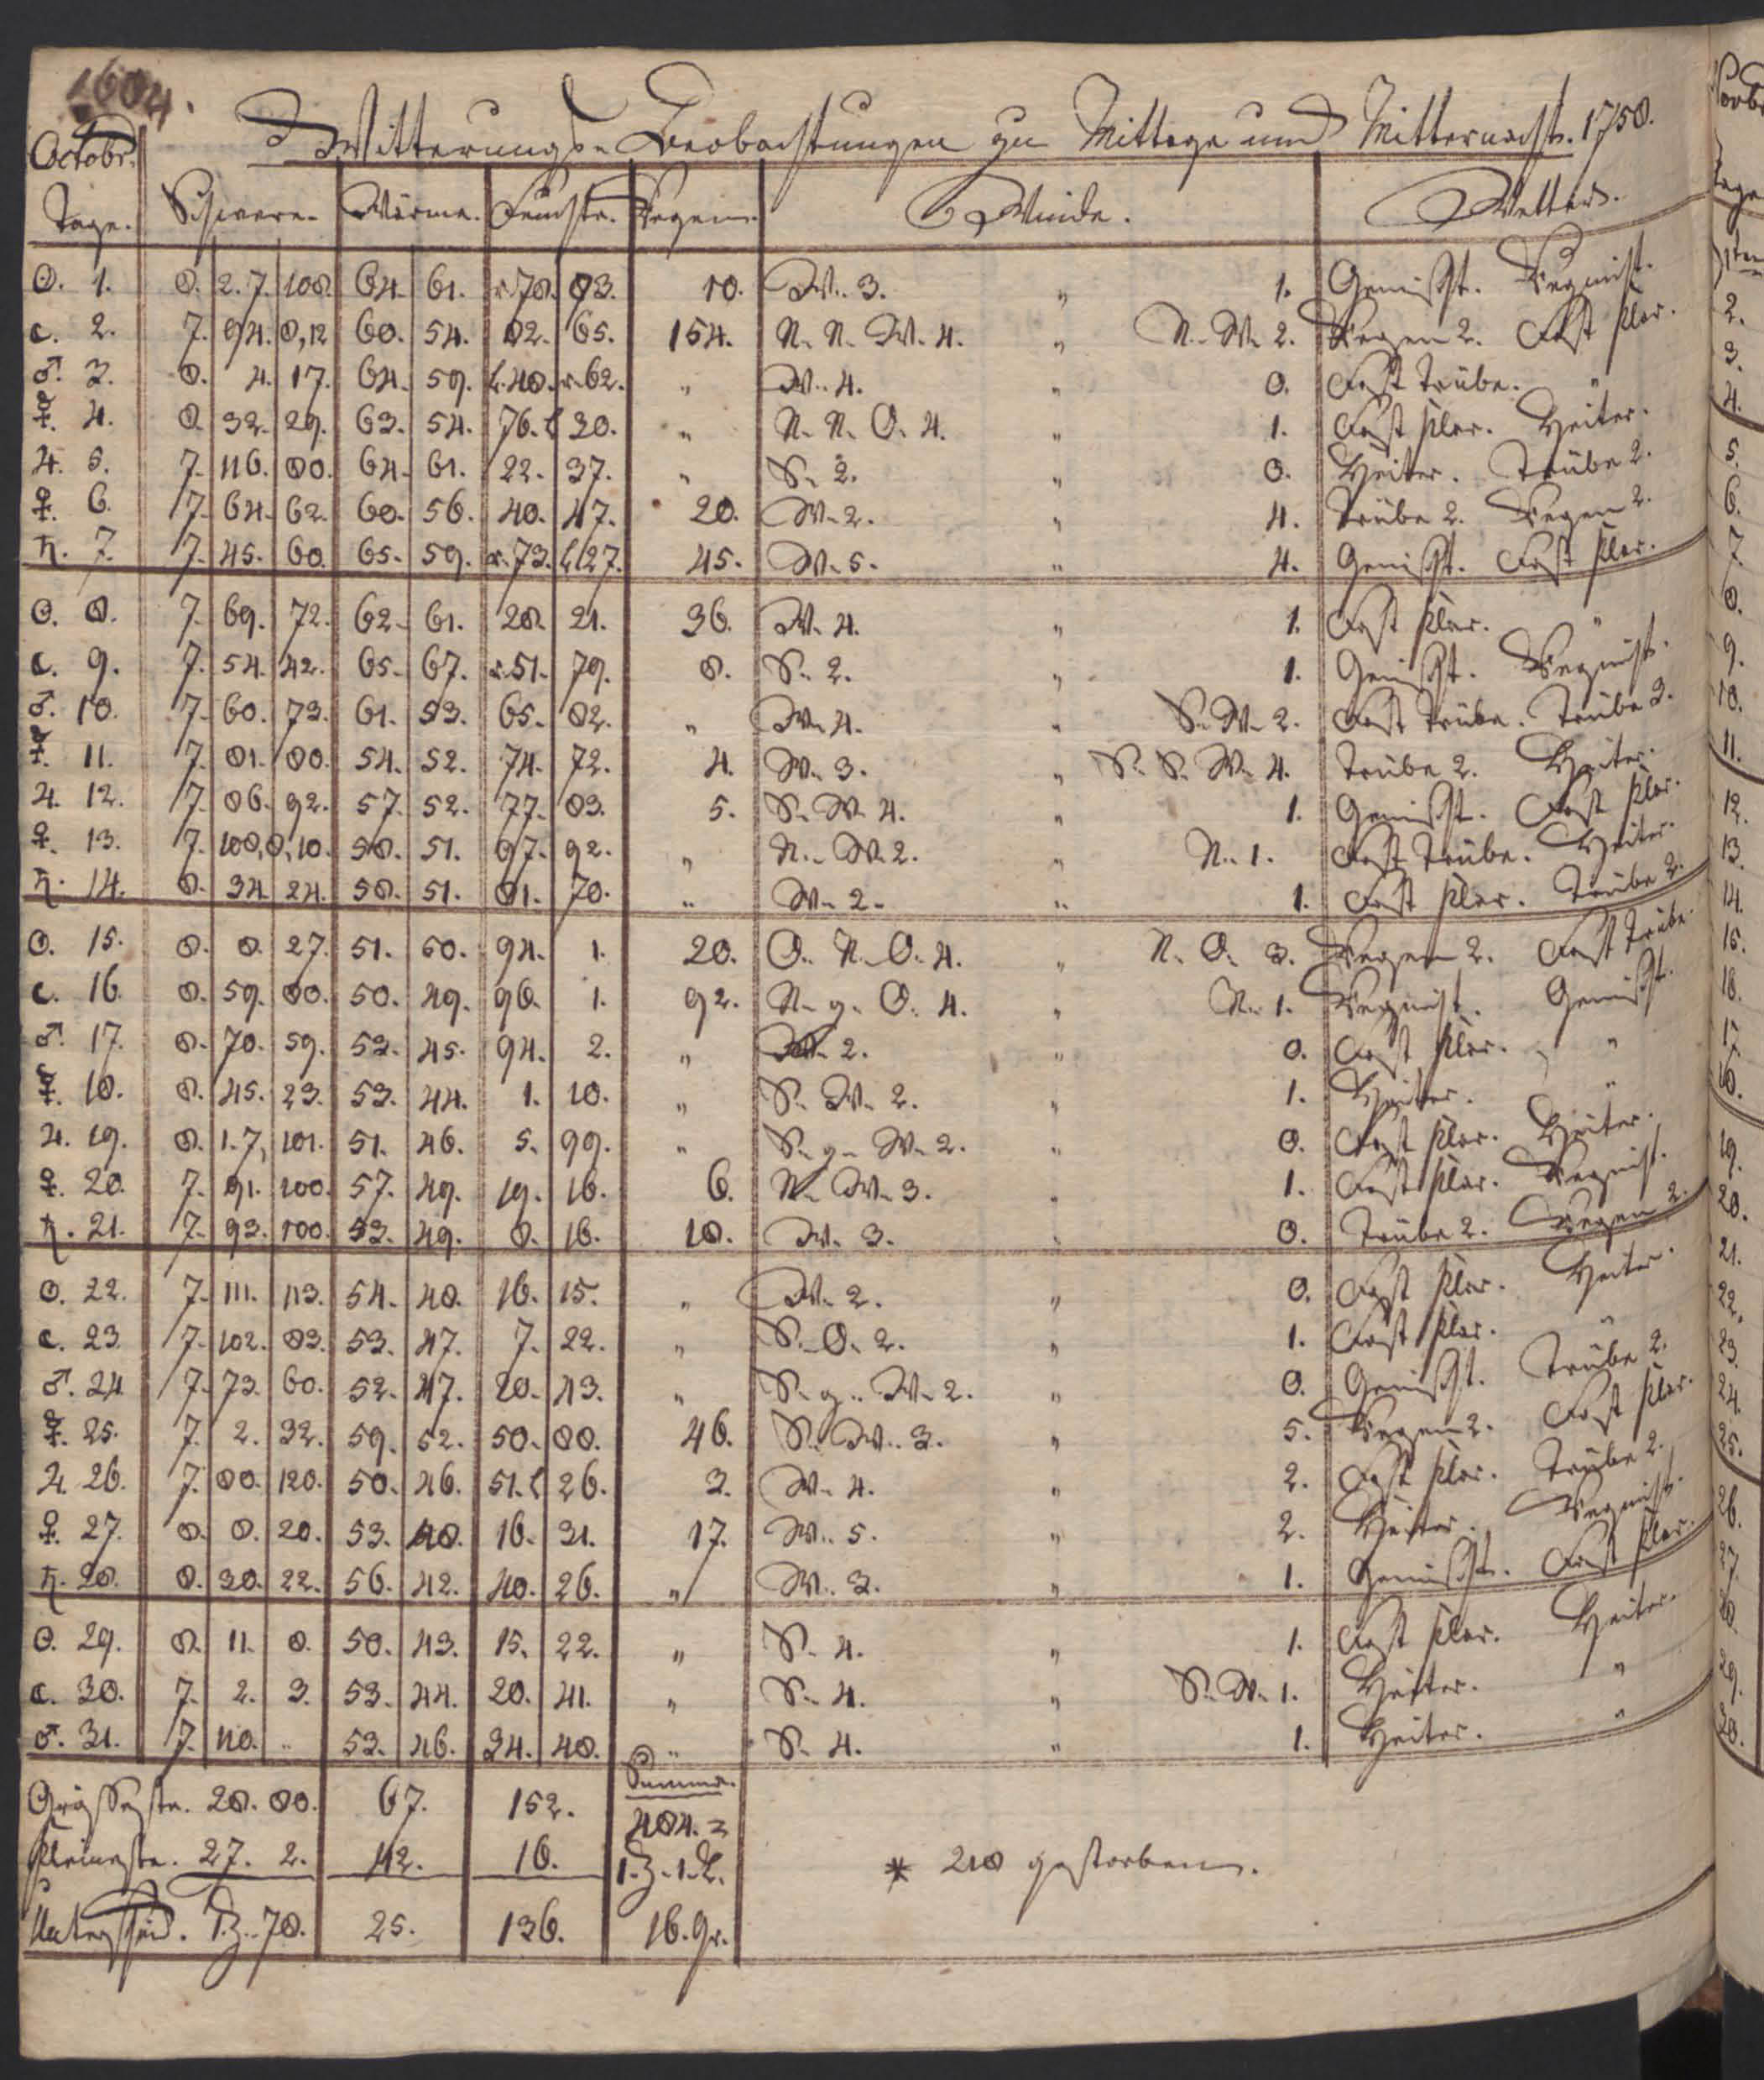 1604.
Witterungs= Beobachtungen zu Mittage und Mitternacht. 1758.
Octobr.
Tage. Schwere. Wärme. Feuchte. Regen. Winde. Wetter.
☉. 1. 8. 27. 108. 64. 61. r.78. 83. 10. W. 3. „ 1. Gemischt. Regnist.
☾. 2. 7. 94. 8,12 60. 54. 82. 65. 154. N. N. W. 4. „ N. W. 2. Regen 2. Fast klar.
♂. 3. 8. 4. 17. 64. 59. l.48. r.62. „ W. 4. „ 0. Fast trübe. „
☿. 4. 8. 32. 29. 63. 54. 76. l 30. „ N. N. O. 4. „ 1. Fast klar. Heiter.
♃. 5. 7. 116. 88. 64. 61. 22. 37. „ S. 2. „ 0. Heiter. Trübe 2.
♀. 6. 7. 64. 62. 60. 56. 40. 47. 20. W. 2. „ 4. Trübe 2. Regen 2.
♄. 7. 7. 45. 60. 65. 59. r.73. l.27. 45. W. 5. „ 4. Gemischt. Fast klar.
☉. 8. 7. 69. 72. 62. 61. 28. 21. 36. W. 4. „ 1. Fast klar. „
☾. 9. 7. 54. 42. 65. 67. r.51. 79. 8. S. 2. „ 1. Gemischt. Regnist.
♂. 10. 7. 60. 73. 61. 53. 65. 82. „ W. 4. „ S. W. 2. Fast trübe. Trübe 3.
☿. 11. 7. 81. 80. 54. 52. 74. 72. 4. W. 3. „ S. S. W. 4. Trübe 2. Heiter.
♃. 12. 7. 86. 92. 57. 52. 77. 83. 5. S. W. 4. „ 1. Gemischt. Fast klar.
♀. 13. 7. 108, 8,10. 58. 51. 97. 92. „ N. W. 2. „ N. 1. Fast trübe. Heiter.
♄. 14. 8. 34. 24. 58. 51. 81. 70. „ W. 2. „ 1. Fast klar. Trübe 2.
☉. 15. 8. 8. 27. 51. 50. 94. 1. 20. O. N. O. 4. „ N. O. 3. Regen 2. Fast trübe.
☾. 16. 8. 59. 80. 50. 49. 96. 1. 92. N. g. O. 4. „ N. 1. Regnist. Gemischt.
♂. 17. 8. 70. 59. 53. 45. 94. 2. „ W. 2. „ 0. Fast klar. „
☿. 18. 8. 45. 23. 53. 44. 1. 10. „ S. W. 2. „ 1. Heiter. „
♃. 19. 8. 1. 7, 101. 51. 46. 5. 99. „ S. g. W. 2. „ 0. Fast klar. Heiter.
♀. 20. 7. 91. 100. 57. 49. 19. 16. 6. N. W. 3. „ 1. Fast klar. Regnist.
♄. 21. 7. 93. 100. 53. 49. 8. 16. 18. W. 3. „ 0. Trübe 2. Regen 2.
☉. 22. 7. 111. 113. 54. 48. 16. 15. „ W. 2. „ 0. Fast klar. Heiter.
☾. 23. 7. 102. 83. 53. 47. 7. 22. „ S. O. 2. „ 1. Fast klar. „
♂. 24. 7. 73. 60. 52. 47. 20. 43. „ S. g. W. 2. „ 0. Gemischt. Trübe 2.
☿. 25. 7. 2. 32. 59. 52. 50. 80. 46. S. W. 3. „ 5. Regen 2. Fast klar.
♃. 26. 7. 80. 120. 50. 46. 51. l 26. 3. W. 4. „ 2. Fast klar. Trübe 2.
♀. 27. 8. 8. 20. 53. 48. 16. 31. 17. W. 5. „ 2. Heiter. Regnist.
♄. 28. 8. 30. 22. 56. 42. 40. 26. „ W. 3. „ 1. Gemischt. Fast klar.
☉. 29. 8. 11. 8. 50. 43. 15. 22. „ S. 4. „ 1. Fast klar. Heiter.
☾. 30. 7. 2. 3. 53. 44. 20. 41. „ S. 4. „ S. W. 1. Heiter. „
♂. 31. 7. 110. „ 53. 46. 34. 48. „ S. 4. „ 1. Heiter. „
Summe.
Grösseste. 28. 80. 67. 152. 484. =
Kleineste. 27. 2. 42. 16. 1. Z. 1. L.
* 218 gestorben.
Unterschied. 1. Z. 78. 25. 136. 16. gr.